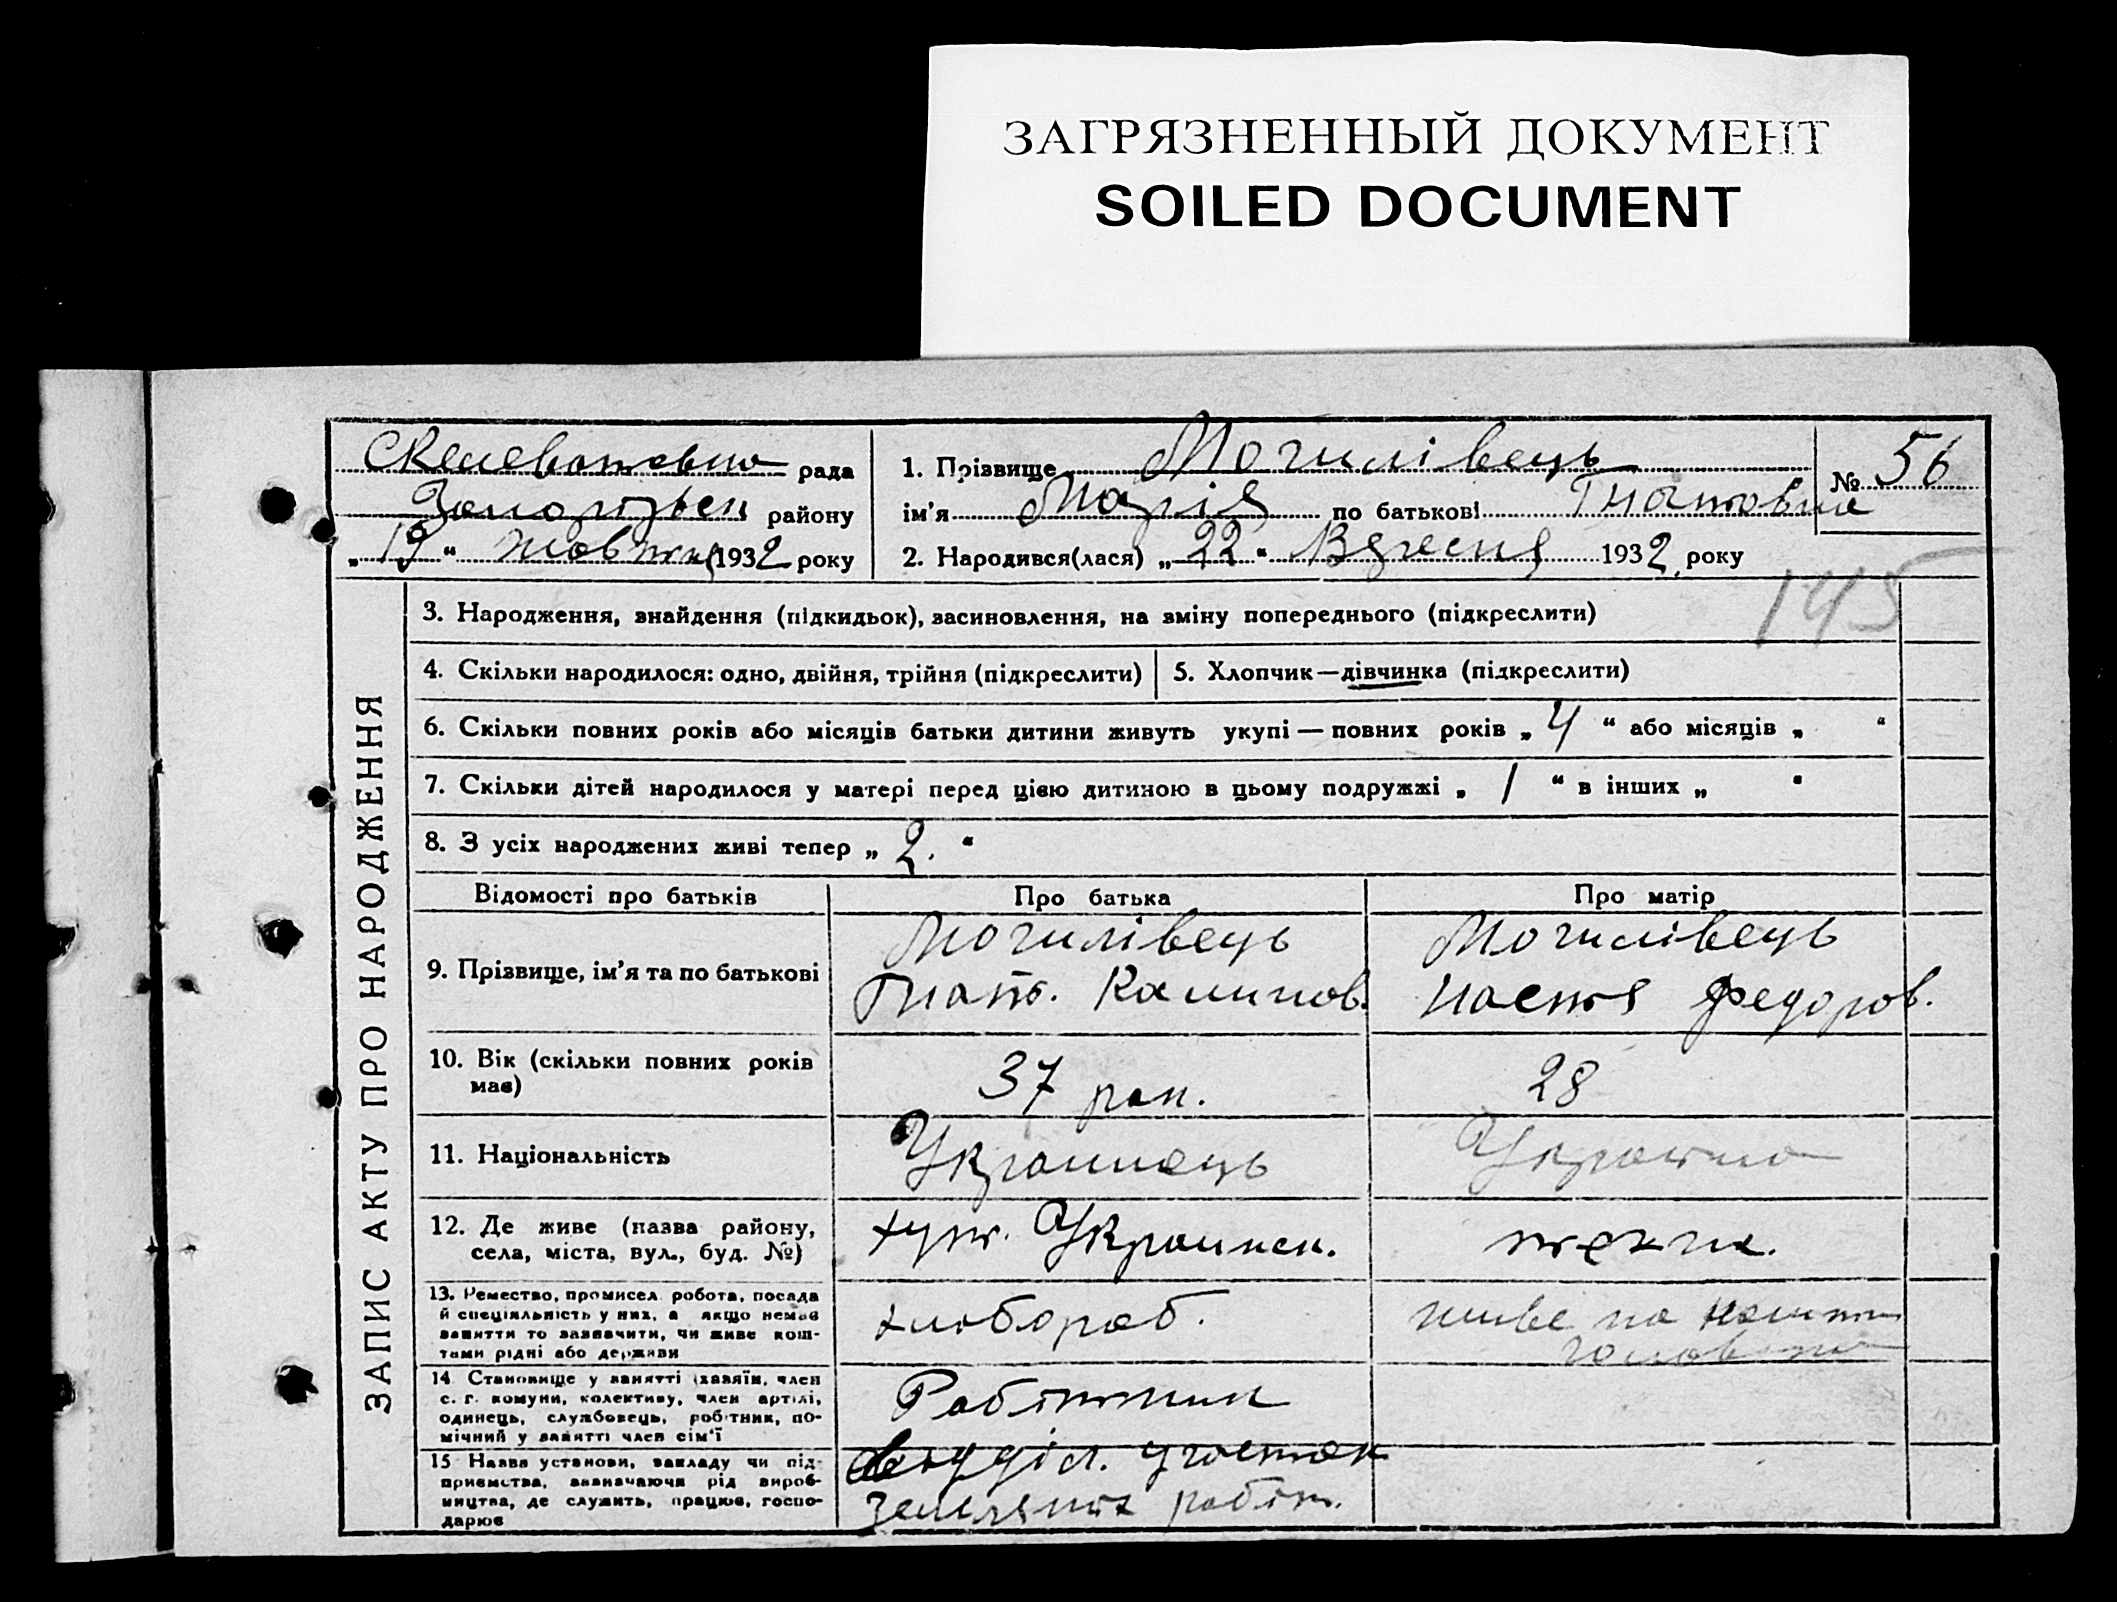 ЗАГРЯЗНЕННЫЙ ДОКУМЕНТ
SOILED DOCUMENT
Скелеватовська рада
району
„ 19 “ жовтня 1932 року
1. Прізвище Могилівець
ім'я Марія по батькові Гнатовна
2. Народився(лася) „ 22 “ Вересня 1932 року
№ 56
145
ЗАПИС АКТУ ПРО НАРОДЖЕННЯ
3. Народження, знайдення (підкидьок), засиновлення, на зміну попереднього (підкреслити)
4. Скільки народилося: одно, двійня, трійня (підкреслити)
5. Хлопчик—дівчинка (підкреслити)
6. Скільки повних років або місяців батьки дитини живуть укупі — повних років „ 4 “ або місяців „ “
7. Скільки дітей народилося у матері перед цією дитиною в цьому подружжі „ 1 “ в інших „ “
8. З усіх народжених живі тепер „ 2. “
Відомості про батьків
Про батька
Про матір
9. Прізвище, ім'я та по батькові
Могилівець
Гнат. Калинов.
Могилівець
Настя Федоров.
10. Вік (скільки повних років має)
37 рок.
28
11. Національність
Украинець
Украинка
12. Де живе (назва району,
села, міста, вул., буд. №)
хут. Украинск.
тежки.
13. Ремество, промисел, робота, посада
й спеціяльність у них, а якщо немає
заняття то зазначити, чи живе кош-
тами рідні або держави
хлібороб.
живе на кошти
14 Становище у занятті (хазяїн, член
с. г. комуни, колективу, член артілі,
одинець, службовець, робітник, по-
мічний у занятті член сім'ї
Робітник
15 Назва установи, закладу чи під-
приємства, зазначаючи рід вироб-
ництва, де служить, працює, госпо-
дарює
участок
земляних робіт.